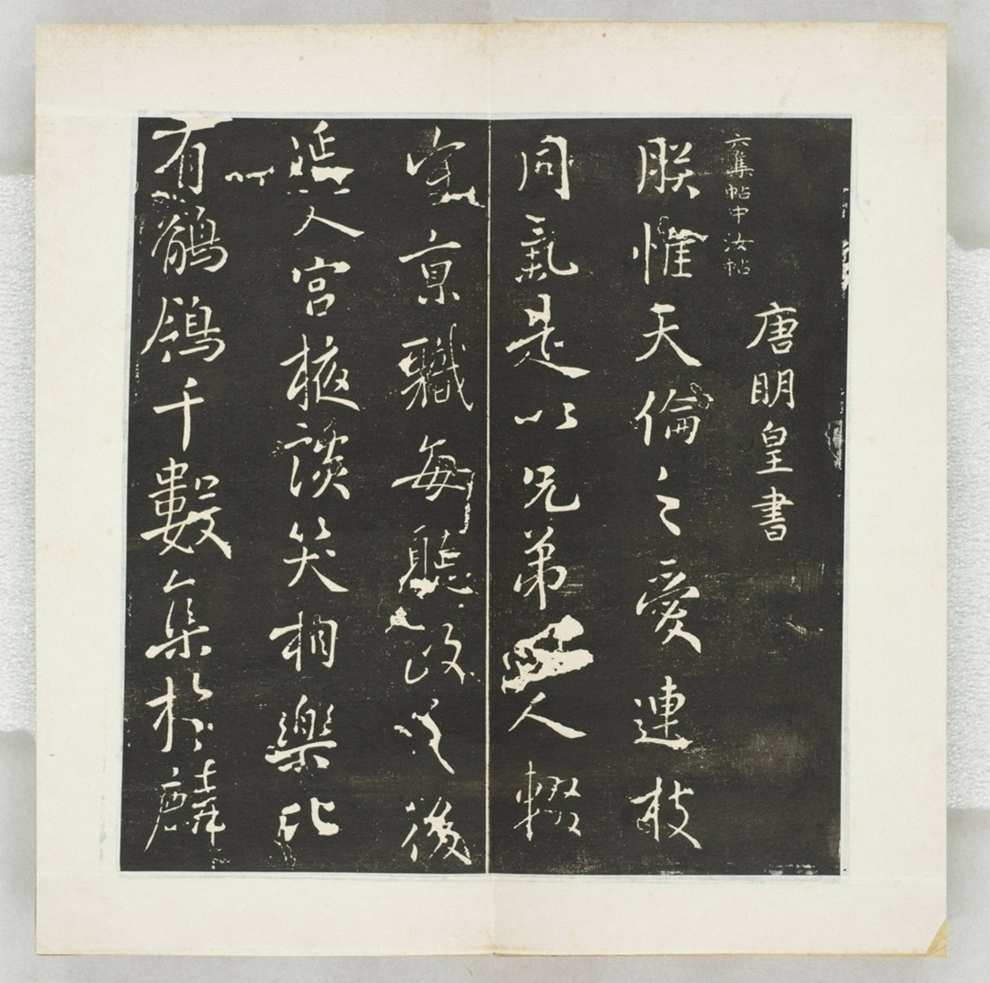 唐眀皇書
六集帖中汝帖
朕惟天倫之愛連枝
同氣是以兄弟人輟
守亰職每聽政之後
延入宮掖談笑相樂比
有鶺鴒千數集於麟